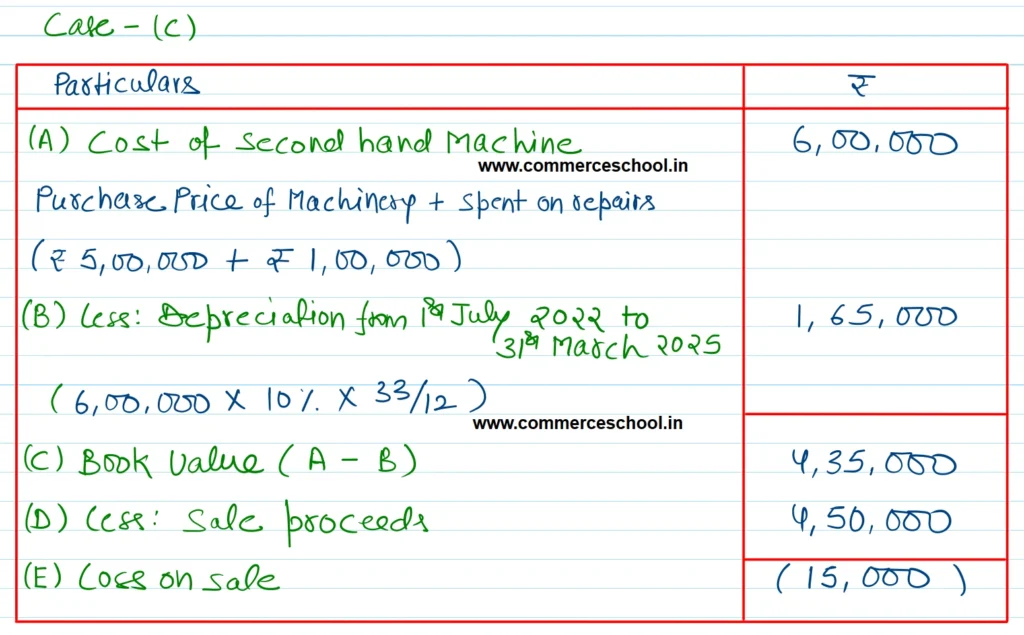 Case - (C)
Particulars ₹
(A) Cost of second hand Machine 6,00,000
www.commerceschool.in
Purchase Price of Machinery + spent on repairs
(₹ 5,00,000 + ₹ 1,00,000)
(B) Less: Depreciation from 1st July 2022 to 1,65,000
31st March 2025
(6,00,000 × 10% × 33/12)
www.commerceschool.in
(C) Book Value (A - B) 4,35,000
(D) Less: Sale proceeds 4,50,000
(E) Loss on sale (15,000)